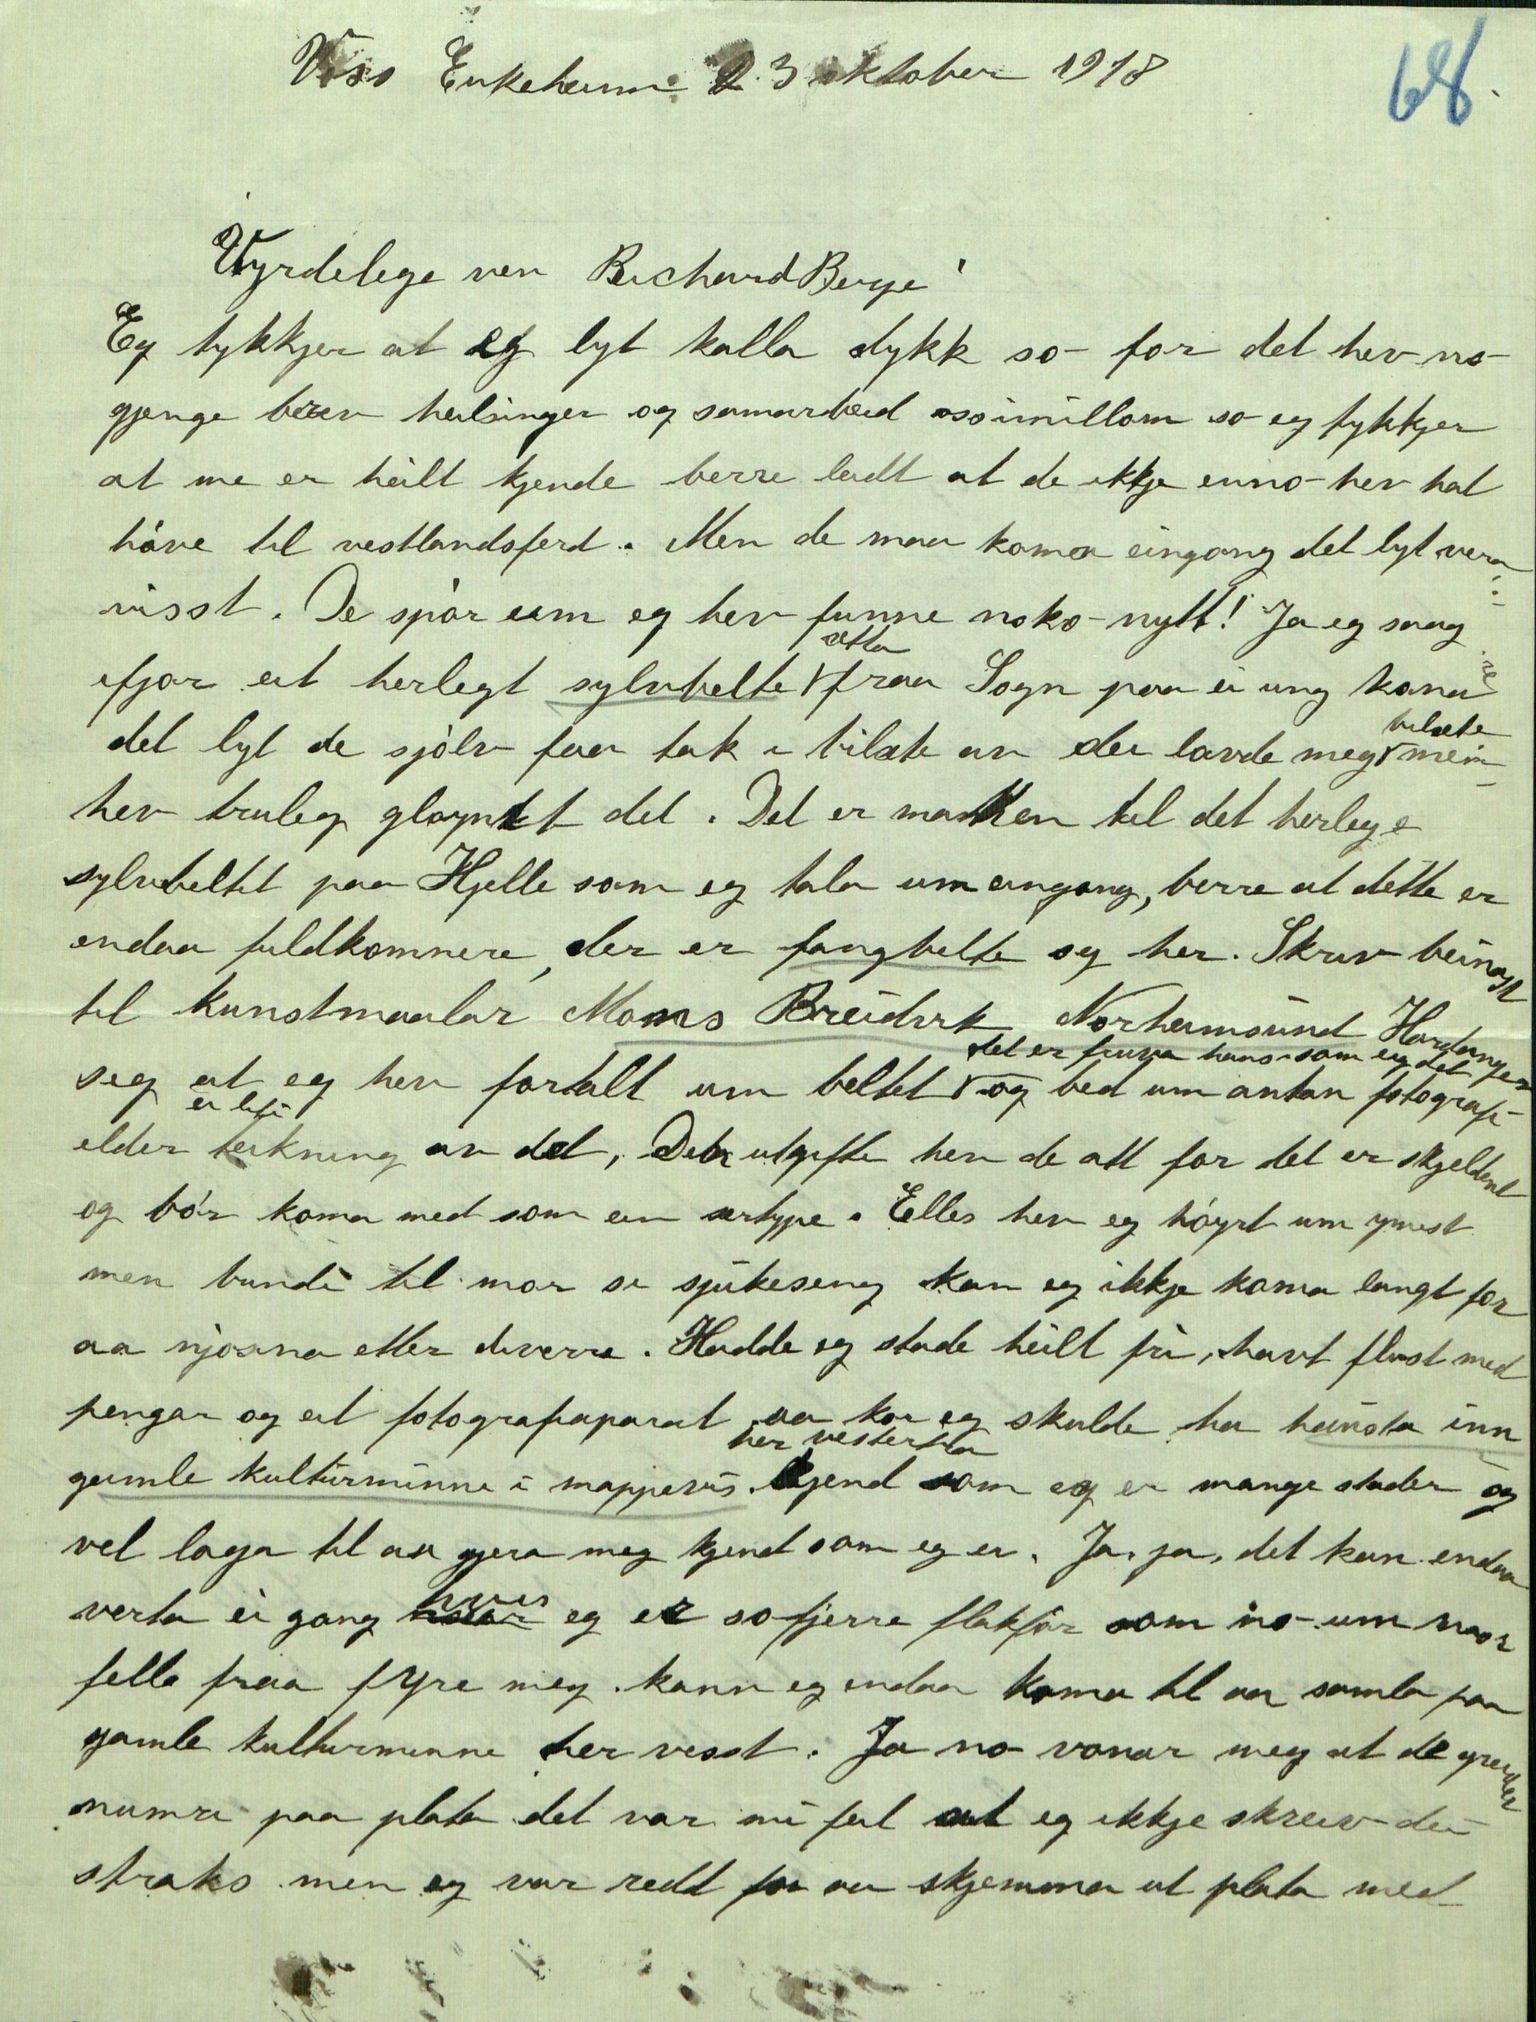 Voss Enkeheim 23 oktober 1918
68.
Vyrdelege ven Richard Berge!
Eg tykkjer at eg lyt kalla dykk so for det hev no
gjenge brev helsinger og samarbeid osoimillom so eg tykkjer
at me er heilt kjende berre leidt at de ikkje enno hev hat
håve til vestlandsferd. Men de maa koma eingong det lyt vera
visst. De spör um eg hev funne noko nytt! Ja eg saag
ætta
ifjor eit herlegt sylvbelte fraa Sogn paa ei ung kona
bilæte
det lyt de sjölv faa tak i bilæte av dei lovde meg men
hev truleg gløymt det. Det er maken til det herlege
sylvbeltet paa Hjelle som eg tala um eingong, berre at dette er
endaa fuldkomnere, der er fangbelte og her. Skriv beinast
til kunstmaalar Mons Breidvik Norheimsund Hardanger
det er fruva hans som eig det
seg at eg hev fortalt um beltet og bed um antan fotografi
ei liti
elder teikning av det, Den utgifta hev de att for det er skjeldent
og bör koma med som ein sertype. Elles hev eg höyrt um ymist
men bundi til mor si sjukeseng kan eg ikkje koma langt for
aa njosna etter diverre. Hadde eg stade heilt fri, havt flust med
pengar og eit fotografaparat aa kor eg skulde ha hausta inn
her vestetter
gamle kulturminne i mappevis. Kjend som eg er mange stader og
vel laga til aa gjera meg kjend som eg er. Ja, ja, det kan endaa
verta ei gong hvis eg er so fjerre flakför som no um mor
fell fraa fyre meg. kann eg endaa koma til aa samla paa
gamle kulturminne her vest. Ja no vonar meg at de greider
numra paa plata det var mi feil at eg ikkje skreiv dei
straks men eg var redd for aa skjemma ut plata med